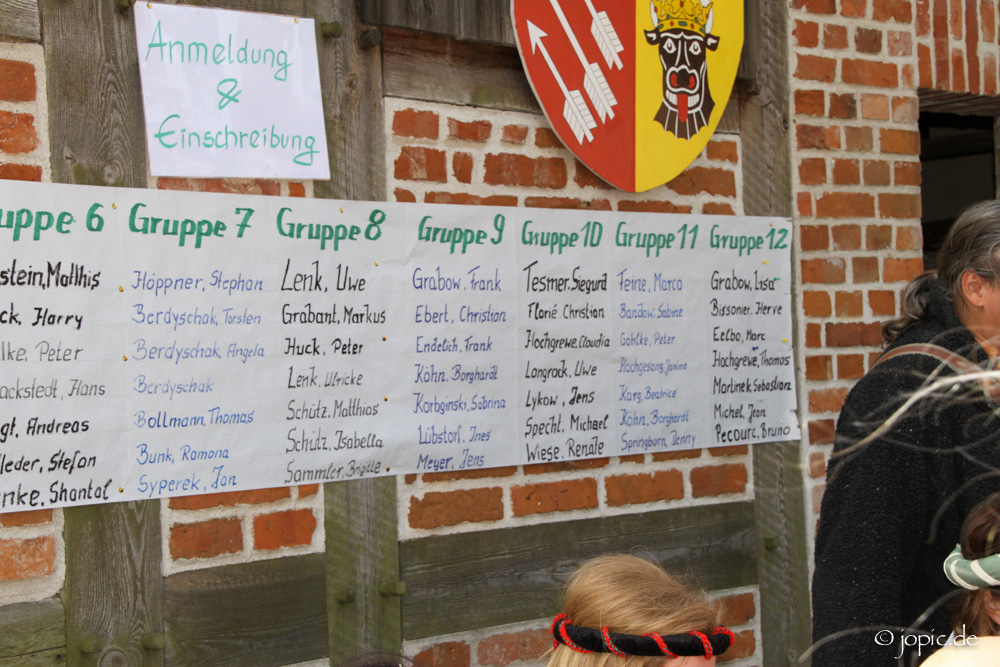 Anmeldung
&
Einschreibung
uppe 6
stein, Matthis
ck, Harry
lke, Peter
ackstedt, Hans
gt, Andreas
lieder, Stefan
nke, Shantal
Gruppe 7
Höppner, Stephan
Berdyschak, Torsten
Berdyschak, Angela
Berdyschak
Bollmann, Thomas
Bunk, Ramona
Syperek, Jan
Gruppe 8
Lenk, Uwe
Grabant, Markus
Huck, Peter
Lenk, Ulricke
Schütz, Matthias
Schütz, Isabella
Sammler, Brigitte
Gruppe 9
Grabow, Frank
Ebert, Christian
Endelich, Frank
Köhn, Borghardt
Korbginski, Sabrina
Lübstorf, Ines
Meyer, Jens
Gruppe 10
Tesmer, Siegurd
Florié, Christian
Hochgrewe, Claudia
Langrock, Uwe
Lykow, Jens
Specht, Michael
Wiese, Renate
Gruppe 11
Teine, Marco
Bandow, Sabine
Gahlke, Peter
Hochgesang, Janine
Karg, Beatrice
Köhn, Borghardt
Springborn, Denny
Gruppe 12
Grabow, Lisa
Bissonier, Herve
Eelbo, Marc
Hochgrewe, Thomas
Martinek, Sebastian
Michel, Jean
Pecourc, Bruno
© jopic.de